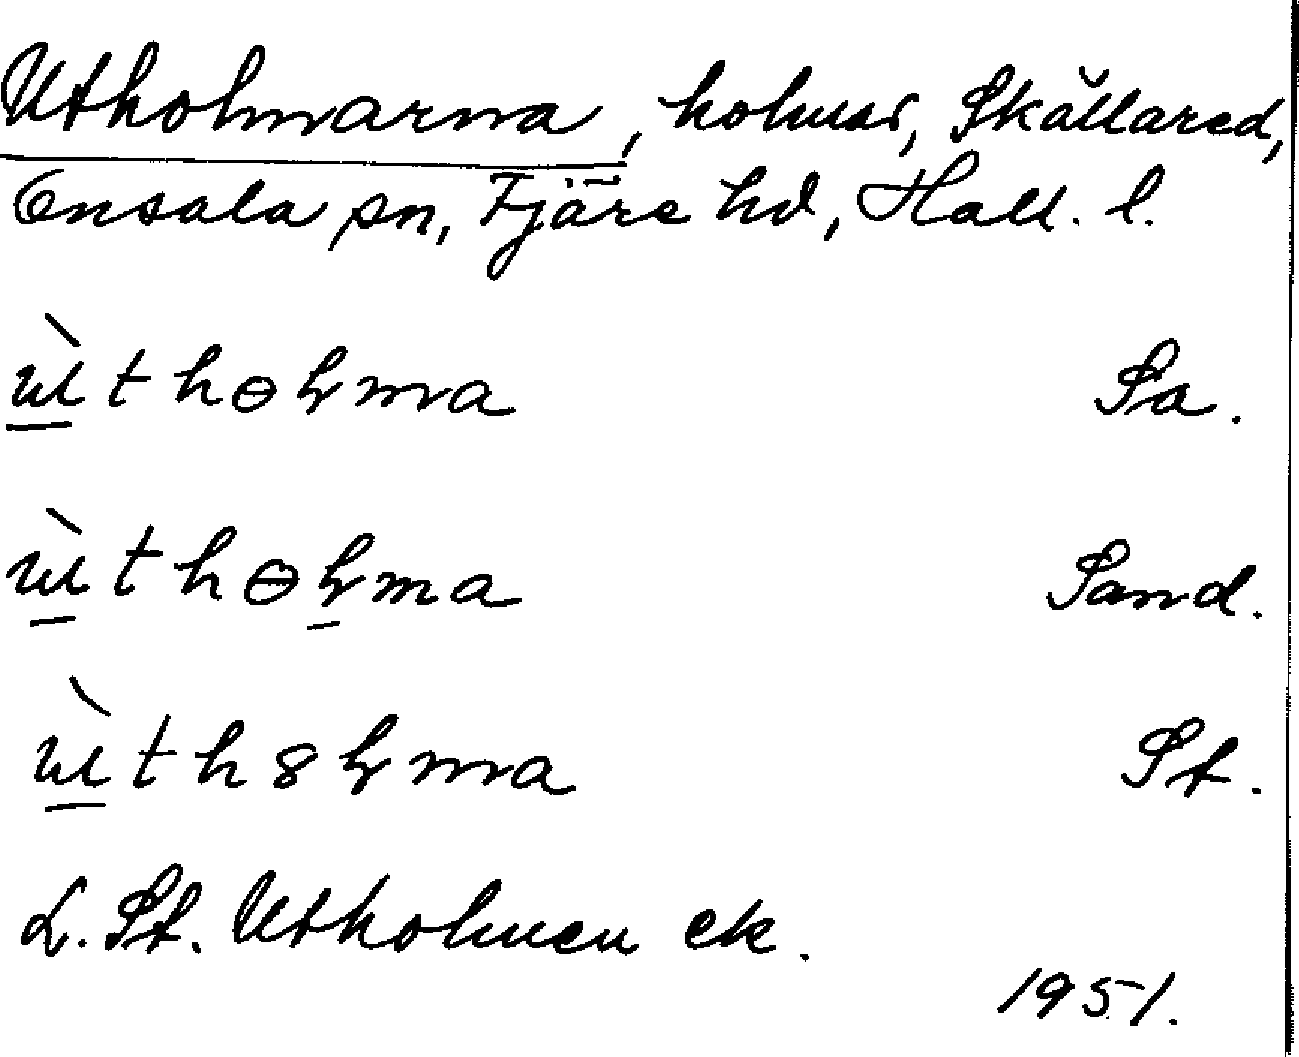 Utholmarna, holmar, Skållared,
Onsala sn, Fjäre hd, Hall. l.
ùt hɵɬma Sa.
ùt hɵɬma Sand.
ùt h8ɬma St.
L. St. Utholmen ek.
1951.